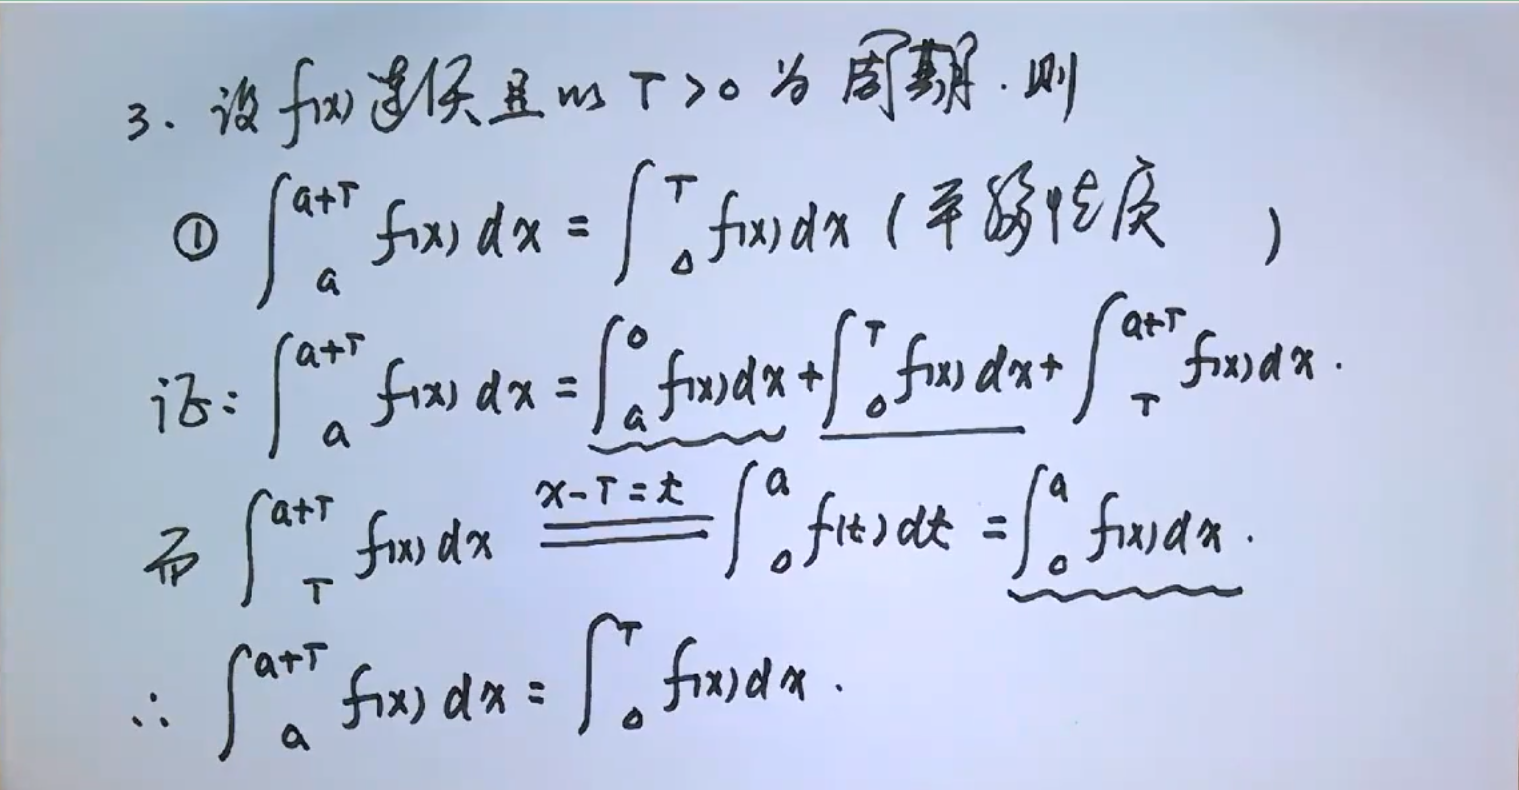 3. 设 f(x) 连续且以 T>0 为周期. 则
① ∫_a^{a+T} f(x) dx = ∫_0^T f(x) dx (平移性质 )
证: ∫_a^{a+T} f(x) dx = ∫_a^0 f(x) dx + ∫_0^T f(x) dx + ∫_T^{a+T} f(x) dx .
而 ∫_T^{a+T} f(x) dx \xlongequal{x-T=t} ∫_0^a f(t) dt = ∫_0^a f(x) dx .
∴ ∫_a^{a+T} f(x) dx = ∫_0^T f(x) dx .